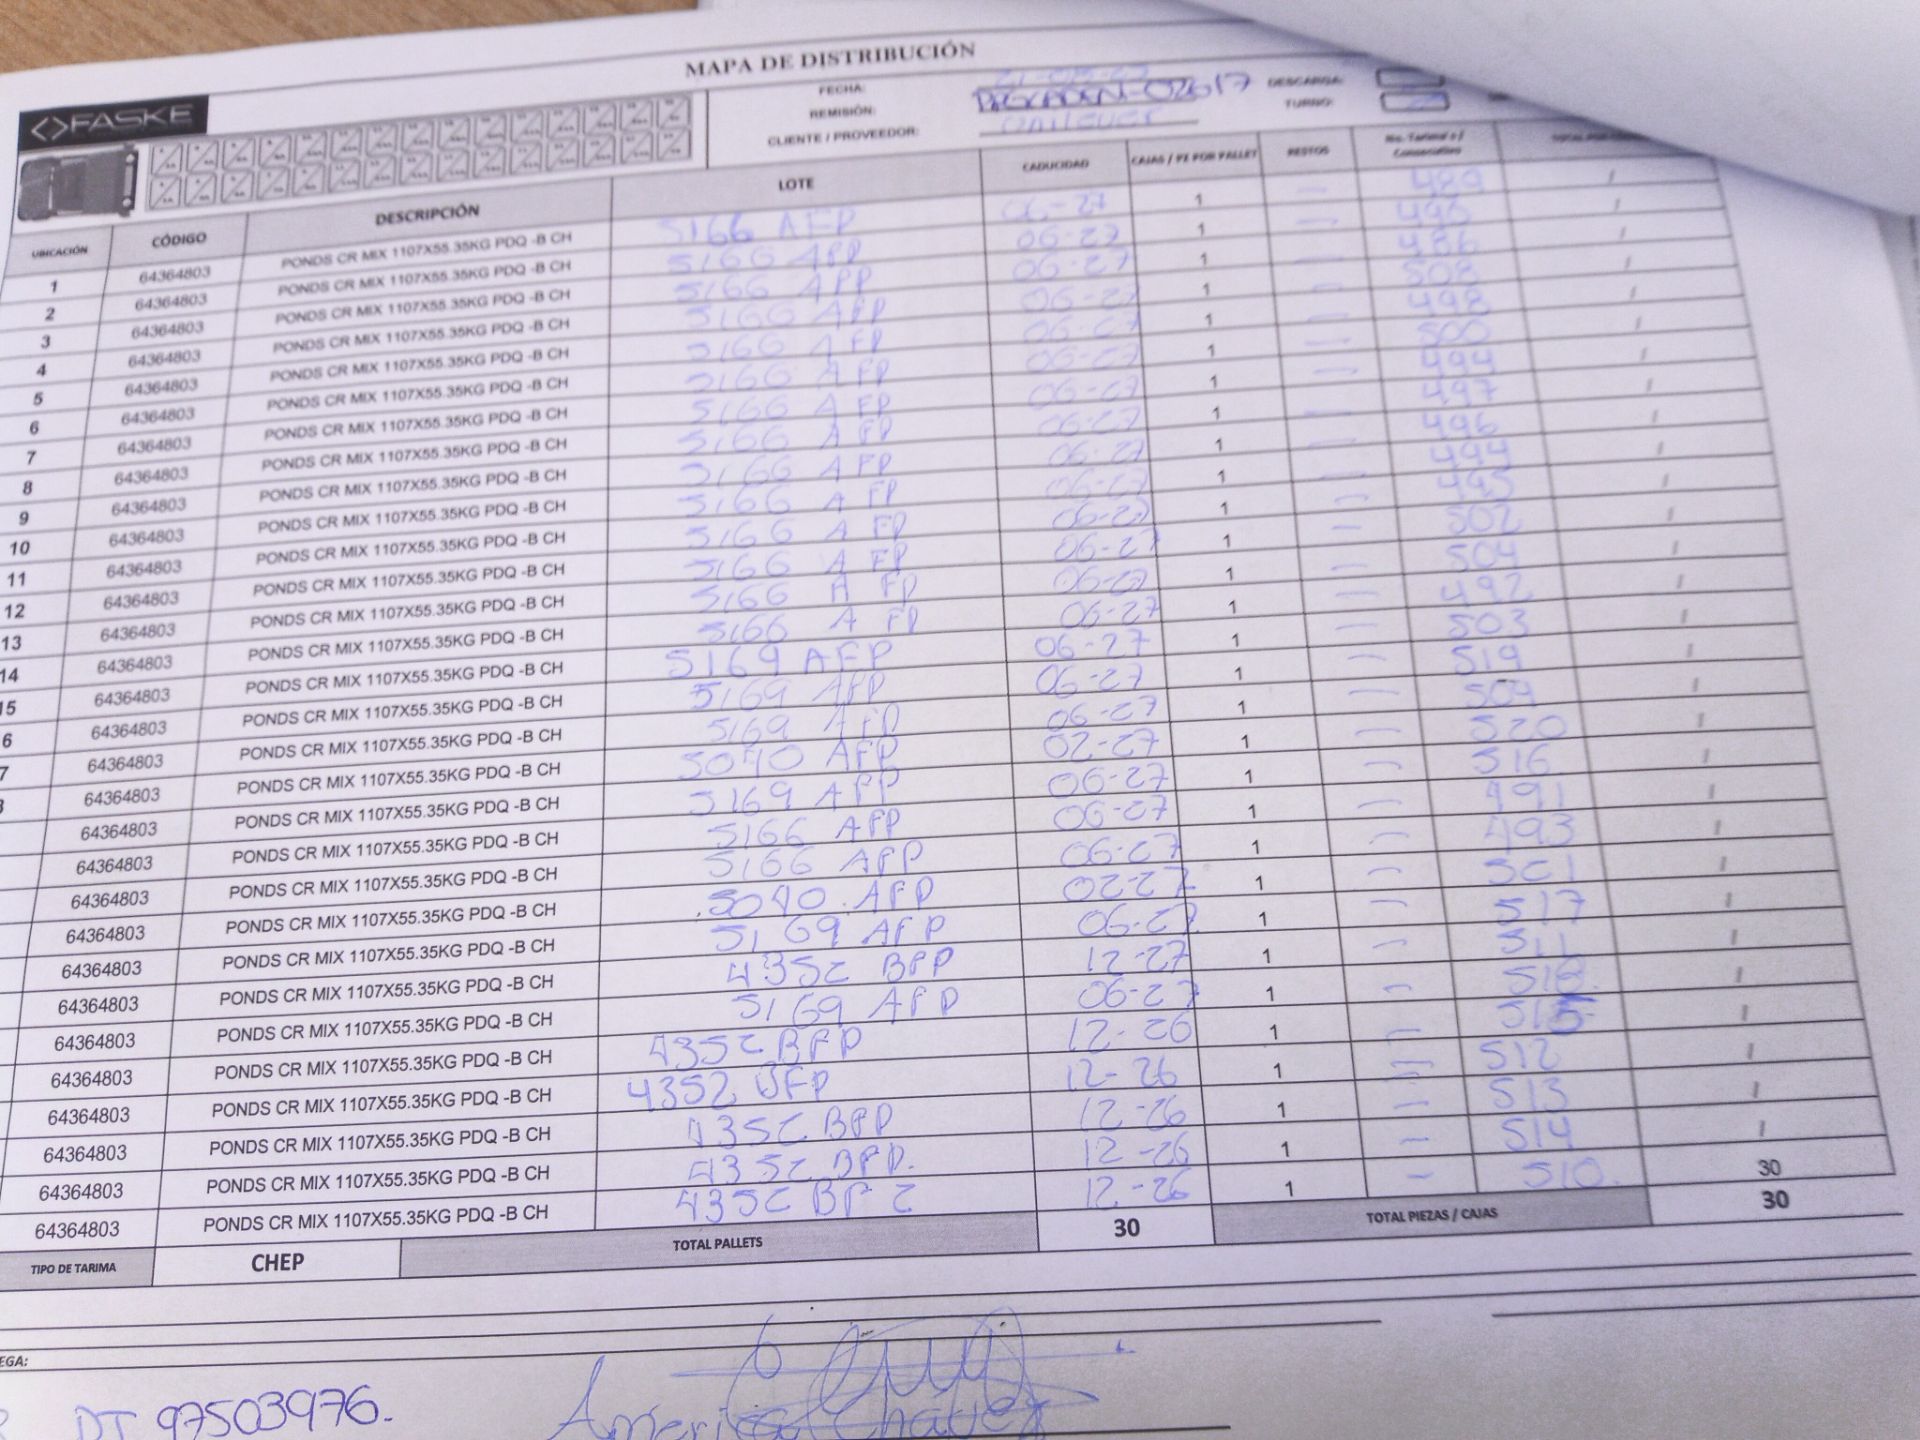 MAPA DE DISTRIBUCIÓN
FASKE
FECHA:
REMISIÓN: 02617
CLIENTE / PROVEEDOR: Unilever
DESCARGA:
TURNO:
UBICACIÓN CÓDIGO DESCRIPCIÓN LOTE CADUCIDAD CAJAS / PZ POR PALLET RESTOS No. Tarima o / Consecutivo
1 64364803 PONDS CR MIX 1107X55.35KG PDQ -B CH 5166 AFP 06-27 1 — 489 1
2 64364803 PONDS CR MIX 1107X55.35KG PDQ -B CH 5166 AFP 06-27 1 — 1
3 64364803 PONDS CR MIX 1107X55.35KG PDQ -B CH 5166 AFP 06-27 1 — 486 1
4 64364803 PONDS CR MIX 1107X55.35KG PDQ -B CH 5166 AFP 06-27 1 — 508 1
5 64364803 PONDS CR MIX 1107X55.35KG PDQ -B CH 5166 AFP 06-27 1 — 498 1
6 64364803 PONDS CR MIX 1107X55.35KG PDQ -B CH 5166 AFP 06-27 1 — 500 1
7 64364803 PONDS CR MIX 1107X55.35KG PDQ -B CH 5166 AFP 06-27 1 — 1
8 64364803 PONDS CR MIX 1107X55.35KG PDQ -B CH 5166 AFP 06-27 1 — 497 1
9 64364803 PONDS CR MIX 1107X55.35KG PDQ -B CH 5166 AFP 06-27 1 — 496 1
10 64364803 PONDS CR MIX 1107X55.35KG PDQ -B CH 5166 AFP 06-27 1 — 494 1
11 64364803 PONDS CR MIX 1107X55.35KG PDQ -B CH 5166 AFP 06-27 1 — 495 1
12 64364803 PONDS CR MIX 1107X55.35KG PDQ -B CH 5166 AFP 06-27 1 — 502 1
13 64364803 PONDS CR MIX 1107X55.35KG PDQ -B CH 5166 AFP 06-27 1 — 504 1
14 64364803 PONDS CR MIX 1107X55.35KG PDQ -B CH 5166 AFP 06-27 1 — 492 1
15 64364803 PONDS CR MIX 1107X55.35KG PDQ -B CH 5169 AFP 06-27 1 — 503 1
6 64364803 PONDS CR MIX 1107X55.35KG PDQ -B CH 5169 AFP 06-27 1 — 519 1
7 64364803 PONDS CR MIX 1107X55.35KG PDQ -B CH 5169 AFP 06-27 1 — 509 1
64364803 PONDS CR MIX 1107X55.35KG PDQ -B CH 5040 AFP 02-27 1 — 520 1
64364803 PONDS CR MIX 1107X55.35KG PDQ -B CH 5169 AFP 06-27 1 — 516 1
64364803 PONDS CR MIX 1107X55.35KG PDQ -B CH 5166 AFP 06-27 1 — 491 1
64364803 PONDS CR MIX 1107X55.35KG PDQ -B CH 5166 AFP 06-27 1 — 493 1
64364803 PONDS CR MIX 1107X55.35KG PDQ -B CH 5040 AFP 02-27 1 — 501 1
64364803 PONDS CR MIX 1107X55.35KG PDQ -B CH 5169 AFP 06-27 1 — 517 1
64364803 PONDS CR MIX 1107X55.35KG PDQ -B CH 4352 BFP 12-27 1 — 511 1
64364803 PONDS CR MIX 1107X55.35KG PDQ -B CH 5169 AFP 06-27 1 — 518 1
64364803 PONDS CR MIX 1107X55.35KG PDQ -B CH 4352 BFP 12-26 1 — 515 1
64364803 PONDS CR MIX 1107X55.35KG PDQ -B CH 4352 BFP 12-26 1 — 512 1
64364803 PONDS CR MIX 1107X55.35KG PDQ -B CH 4352 BFP 12-26 1 — 513 1
64364803 PONDS CR MIX 1107X55.35KG PDQ -B CH 4352 BFP. 12-26 1 — 514 1
64364803 PONDS CR MIX 1107X55.35KG PDQ -B CH 4352 12-26 1 — 510. 30
TIPO DE TARIMA CHEP TOTAL PALLETS 30 TOTAL PIEZAS / CAJAS 30
EGA:
DT 97503976. America Chávez